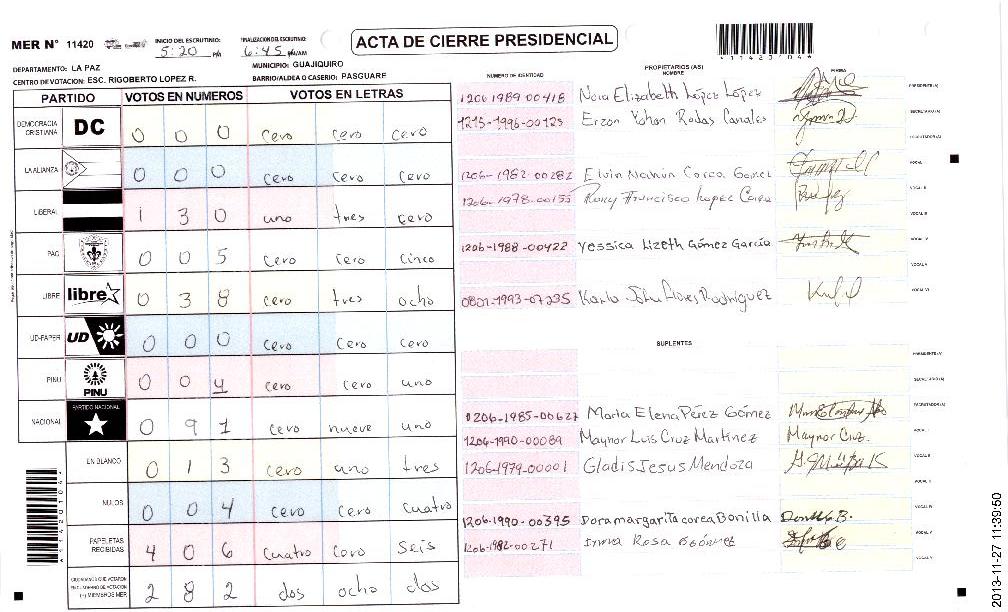 MER N° 11420 INICIO DEL ESCRUTINIO: 5:20 FINALIZACION DEL ESCRUTINIO: 6:45 PM/AM
ACTA DE CIERRE PRESIDENCIAL
*1142004*
DEPARTAMENTO: LA PAZ MUNICIPIO: GUAJIQUIRO
CENTRO DE VOTACION: ESC. RIGOBERTO LOPEZ R. BARRIO/ALDEA O CASERIO: PASGUARE
PARTIDO VOTOS EN NUMEROS VOTOS EN LETRAS
DEMOCRACIA CRISTIANA DC 0 0 0 cero cero cero
LA ALIANZA 0 0 0 cero cero cero
LIBERAL 1 3 0 uno tres cero
PAC 0 0 5 cero cero cinco
LIBRE libre 0 3 8 cero tres ocho
UD-FAPER UD 0 0 0 cero cero cero
PINU PINU 0 0 cero cero uno
NACIONAL PARTIDO NACIONAL 0 9 1 cero nueve uno
EN BLANCO 0 1 3 cero uno tres
NULOS 0 0 4 cero cero cuatro
PAPELETAS RECIBIDAS 4 0 6 cuatro cero seis
CIUDADANOS QUE VOTARON
(+) MIEMBROS MER 2 8 2 dos ocho dos
NUMERO DE IDENTIDAD PROPIETARIOS (AS) NOMBRE FIRMA
1206-1989-00418 Elizabeth López López PRESIDENTE(A)
1215-1996-00125 Yohan Rodas Canales SECRETARIO(A)
ESCRUTADOR(A)
1206-1982-00282 Elvin Nahún Corea Gomez VOCAL
1206-1978-00155 Rony Francisco Lopez VOCAL II
VOCAL III
1206-1988-00422 Yessica Lizeth Gómez García VOCAL IV
VOCAL V
0801-1993-07235 Karla Flores Rodríguez VOCAL VI
SUPLENTES
PRESIDENTE(A)
SECRETARIO(A)
1206-1985-00627 Maria Elena Pérez Gómez ESCRUTADOR(A)
1206-1990-00089 Maynor Luis Cruz Martinez Maynor Cruz. VOCAL I
1206-1979-00001 Gladis Jesus Mendoza VOCAL II
VOCAL III
1206-1990-00395 Dora margarita corea Bonilla VOCAL IV
1206-1982-00271 Irma Rosa VOCAL V
VOCAL VI
2013-11-27 11:39:50